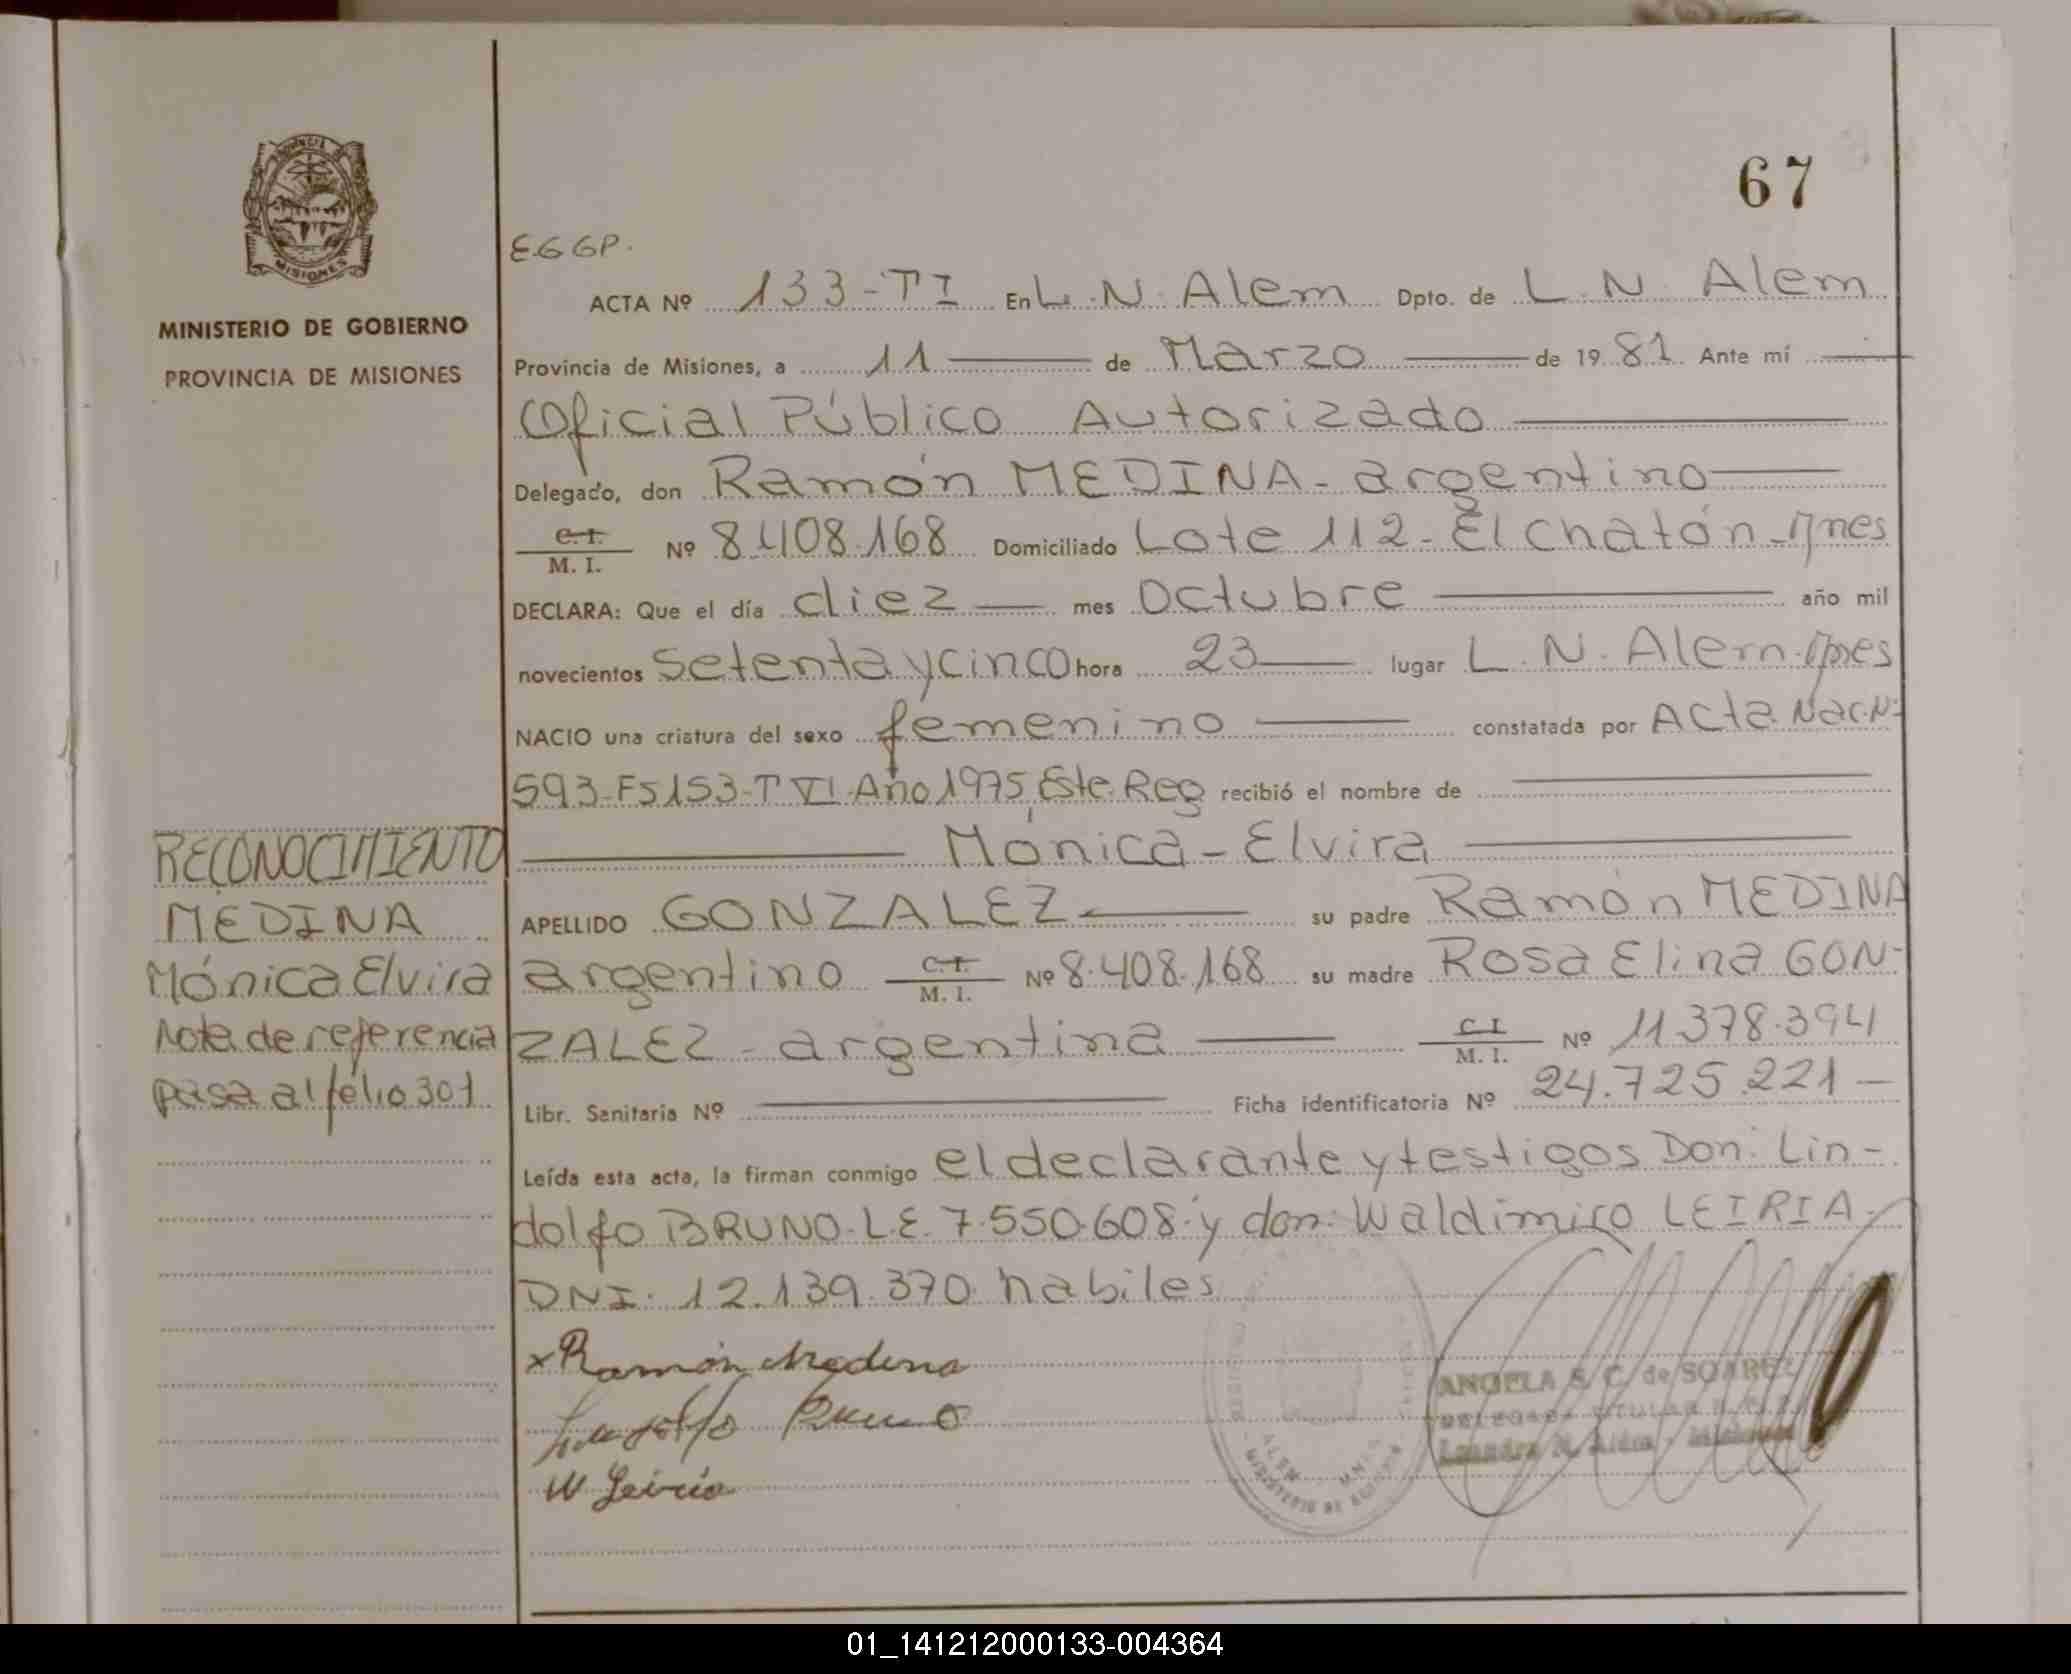 67
PROVINCIA DE
MISIONES
MINISTERIO DE GOBIERNO
PROVINCIA DE MISIONES
E.G.G.P.
ACTA Nº 133-TI En L.N. Alem Dpto. de L.N. Alem
Provincia de Misiones, a 11 de Marzo de 1981. Ante mí
Oficial Público Autorizado
Delegado, don Ramón MEDINA - argentino
C.I. / M.I. Nº 8.408.168 Domiciliado Lote 112 - El Chatón - Mnes
DECLARA: Que el día diez mes Octubre año mil
novecientos setenta y cinco hora 23 lugar L.N. Alem. Mnes
NACIO una criatura del sexo femenino constatada por Acta Nac. Nº
593-Fs 153-T VI. Año 1975 Este Reg recibió el nombre de
Mónica - Elvira
APELLIDO GONZALEZ su padre Ramón MEDINA
argentino C.I. / M.I. Nº 8.408.168 su madre Rosa Elina GON-
ZALEZ - argentina C.I. / M.I. Nº 11.378.394
Libr. Sanitaria Nº Ficha identificatoria Nº 24.725.221 —
Leída esta acta, la firman conmigo el declarante y testigos Don: Lin-
dolfo BRUNO. L.E. 7.550.608 y don: Waldimiro LEIRIA.
DNI. 12.139.370 habiles
x Ramón Medina
Lindolfo Bruno
W Leiria
RECONOCIMIENTO
MEDINA
Mónica Elvira
Nota de referencia
pasa al folio 301
ANGELA S. C. de SOAREZ
DELEGADA TITULAR
Leandro N. Alem - Misiones
ALEM MNES
MINISTERIO DE GOBIERNO
01_141212000133-004364